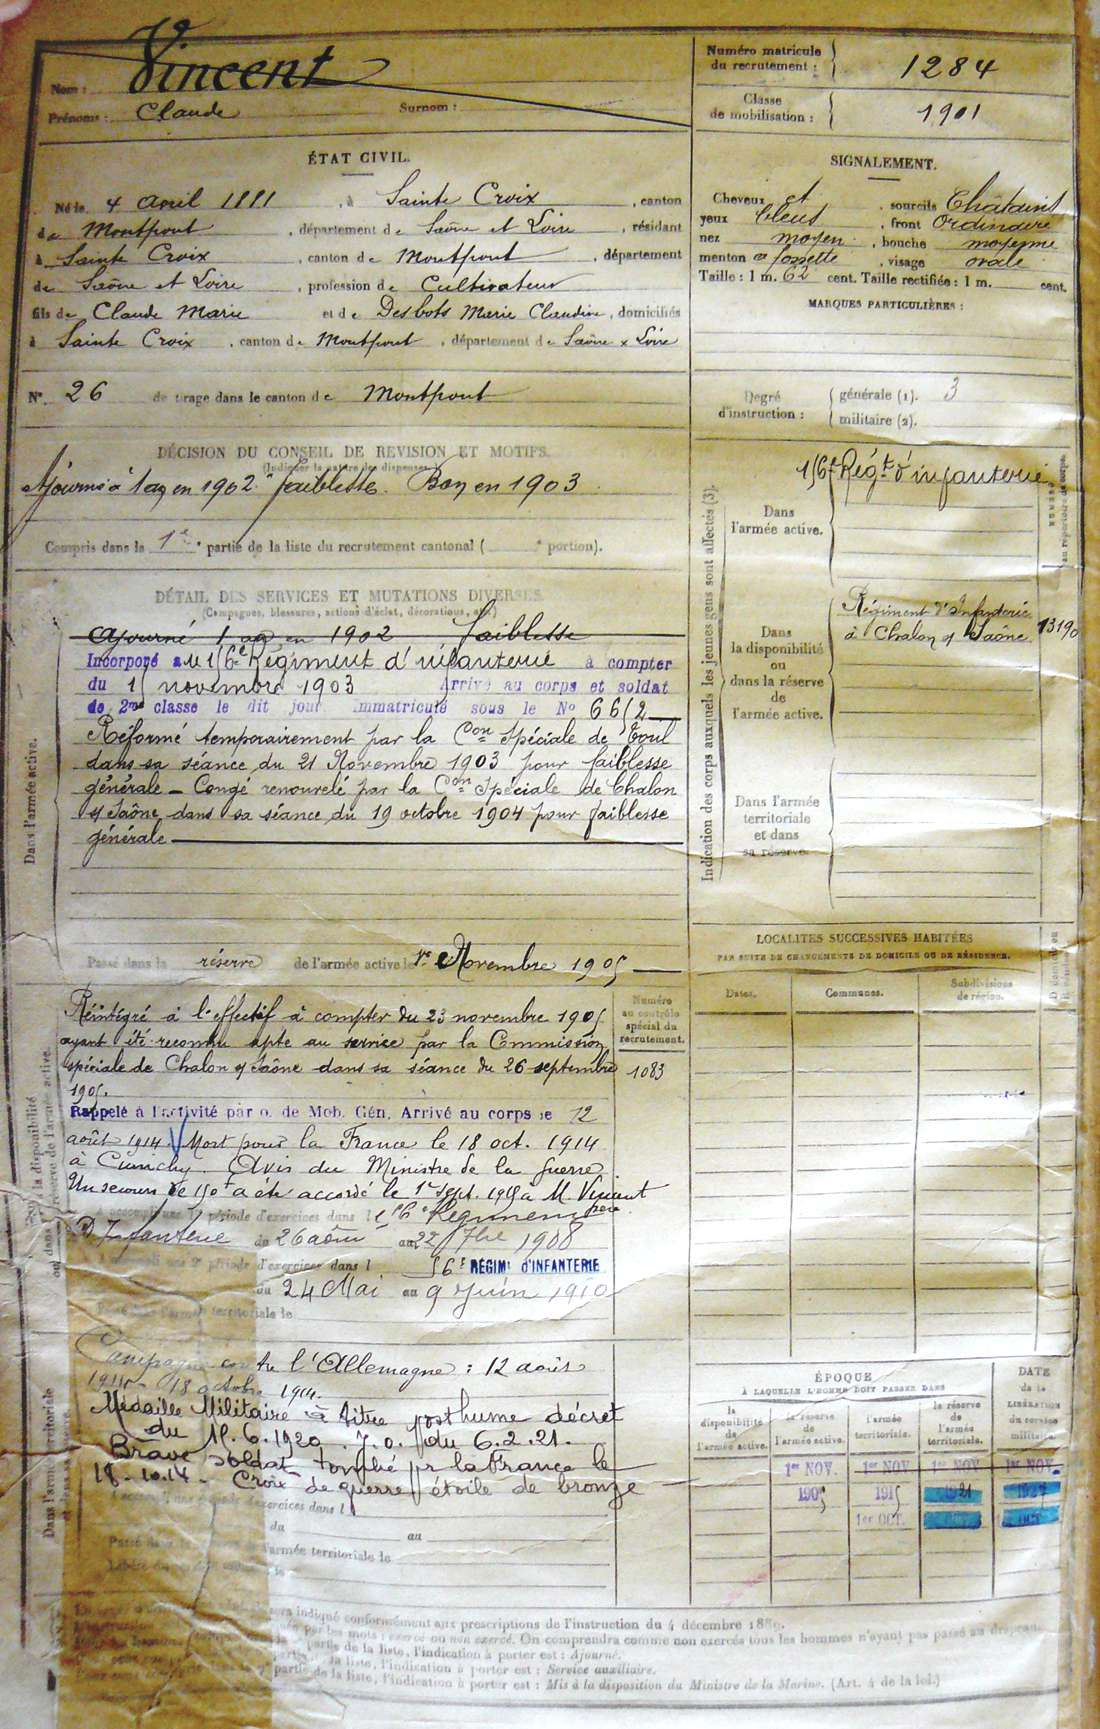 Nom : Vincent
Prénoms : Claude Surnom :
Numéro matricule du recrutement : 1284
Classe de mobilisation : 1901
ÉTAT CIVIL.
Né le 4 avril 1881, à Sainte Croix, canton
de Montpont, département de Saône et Loire, résidant
à Sainte Croix, canton de Montpont, département
de Saône et Loire, profession de Cultivateur
fils de Claude Marie et de Desbots Marie Claudine, domiciliés
à Sainte Croix, canton de Montpont, département de Saône & Loire
N° 26 de tirage dans le canton de Montpont
SIGNALEMENT.
Cheveux et, sourcils Châtains
yeux bleus, front Ordinaire
nez moyen, bouche moyenne
menton à fossette, visage ovale
Taille : 1 m. 62 cent. Taille rectifiée : 1 m. cent.
MARQUES PARTICULIÈRES :
Degré d'instruction : générale (1). 3
militaire (2).
DÉCISION DU CONSEIL DE REVISION ET MOTIFS.
(Indiquer la nature de dispense)
Ajourné à 1 an en 1902. faiblesse. Bon en 1903
Compris dans la 1e partie de la liste du recrutement cantonal ( e portion).
DÉTAIL DES SERVICES ET MUTATIONS DIVERSES.
(Campagnes, blessures, actions d'éclat, décorations, etc.)
Dans l'armée active.
Ajourné 1 an en 1902 faiblesse
Incorporé au 156e Régiment d'infanterie à compter
du 15 novembre 1903 Arrivé au corps et soldat
de 2me classe le dit jour Immatriculé sous le N° 6652
Réformé temporairement par la Con Spéciale de Toul
dans sa séance du 21 Novembre 1903 pour faiblesse
générale – Congé renouvelé par la Con Spéciale de Chalon
s/ Saône dans sa séance du 19 octobre 1904 pour faiblesse
générale
Passé dans la réserve de l'armée active le 1er Novembre 1905
Indication des corps auxquels les jeunes gens sont affectés (3).
Dans l'armée active.
156e Régt d'infanterie
Dans la disponibilité ou dans la réserve de l'armée active.
Régiment d'Infanterie
à Chalon s/ Saône 13190
Dans l'armée territoriale et dans sa réserve.
LOCALITÉS SUCCESSIVES HABITÉES
PAR SUITE DE CHANGEMENTS DE DOMICILE OU DE RÉSIDENCE.
Dates. Communes. Subdivisions de région.
Numéro au contrôle spécial du recrutement.
1083
Réintégré à l'effectif à compter du 23 novembre 1905
ayant été reconnu apte au service par la Commission
spéciale de Chalon s/ Saône dans sa séance du 26 septembre
1905.
Rappelé à l'activité par o. de Mob. Gén. Arrivé au corps le 12
août 1914. Mort pour la France le 18 oct. 1914
à Cuinchy. Avis du Ministre de la Guerre
Un secours de 150f a été accordé le 1er sept. 1915 à M. Vincent père
A accompli une 1re période d'exercices dans l 56e Régiment
d'Infanterie du 26 août au 22 7bre 1908
A accompli une 2e période d'exercices dans l 56e RÉGIMt d'INFANTERIE
du 24 Mai au 9 Juin 1910
Passé dans l'armée territoriale le
Dans l'armée territoriale
Campagne contre l'Allemagne : 12 août
1914 - 18 octobre 1914.
Médaille Militaire à titre posthume décret
du 11.6.1920. J.O. du 6.2.21.
Brave soldat tombé pr la France le
18-10-14 - Croix de guerre étoile de bronze
d'exercices dans l
du au
Passé dans l'armée territoriale le
Libéré
ÉPOQUE
À LAQUELLE L'HOMME DOIT PASSER DANS
la disponibilité de l'armée active.
la réserve de l'armée active.
l'armée territoriale.
la réserve de l'armée territoriale.
DATE de la LIBÉRATION du service militaire.
1er NOV. 1er NOV 1er NOV 1er NOV.
1905 1915 1921 1927
1er OCT. OCT.
sera indiqué conformément aux prescriptions de l'instruction du 4 décembre 1889.
par les mots : exercé ou non exercé. On comprendra comme non exercés tous les hommes n'ayant pas passé au drapeau
partie de la liste, l'indication à porter est : Ajourné.
la liste, l'indication à porter est : Service auxiliaire.
partie de la liste, l'indication à porter est : Mis à la disposition du Ministre de la Marine. (Art. 4 de la loi.)